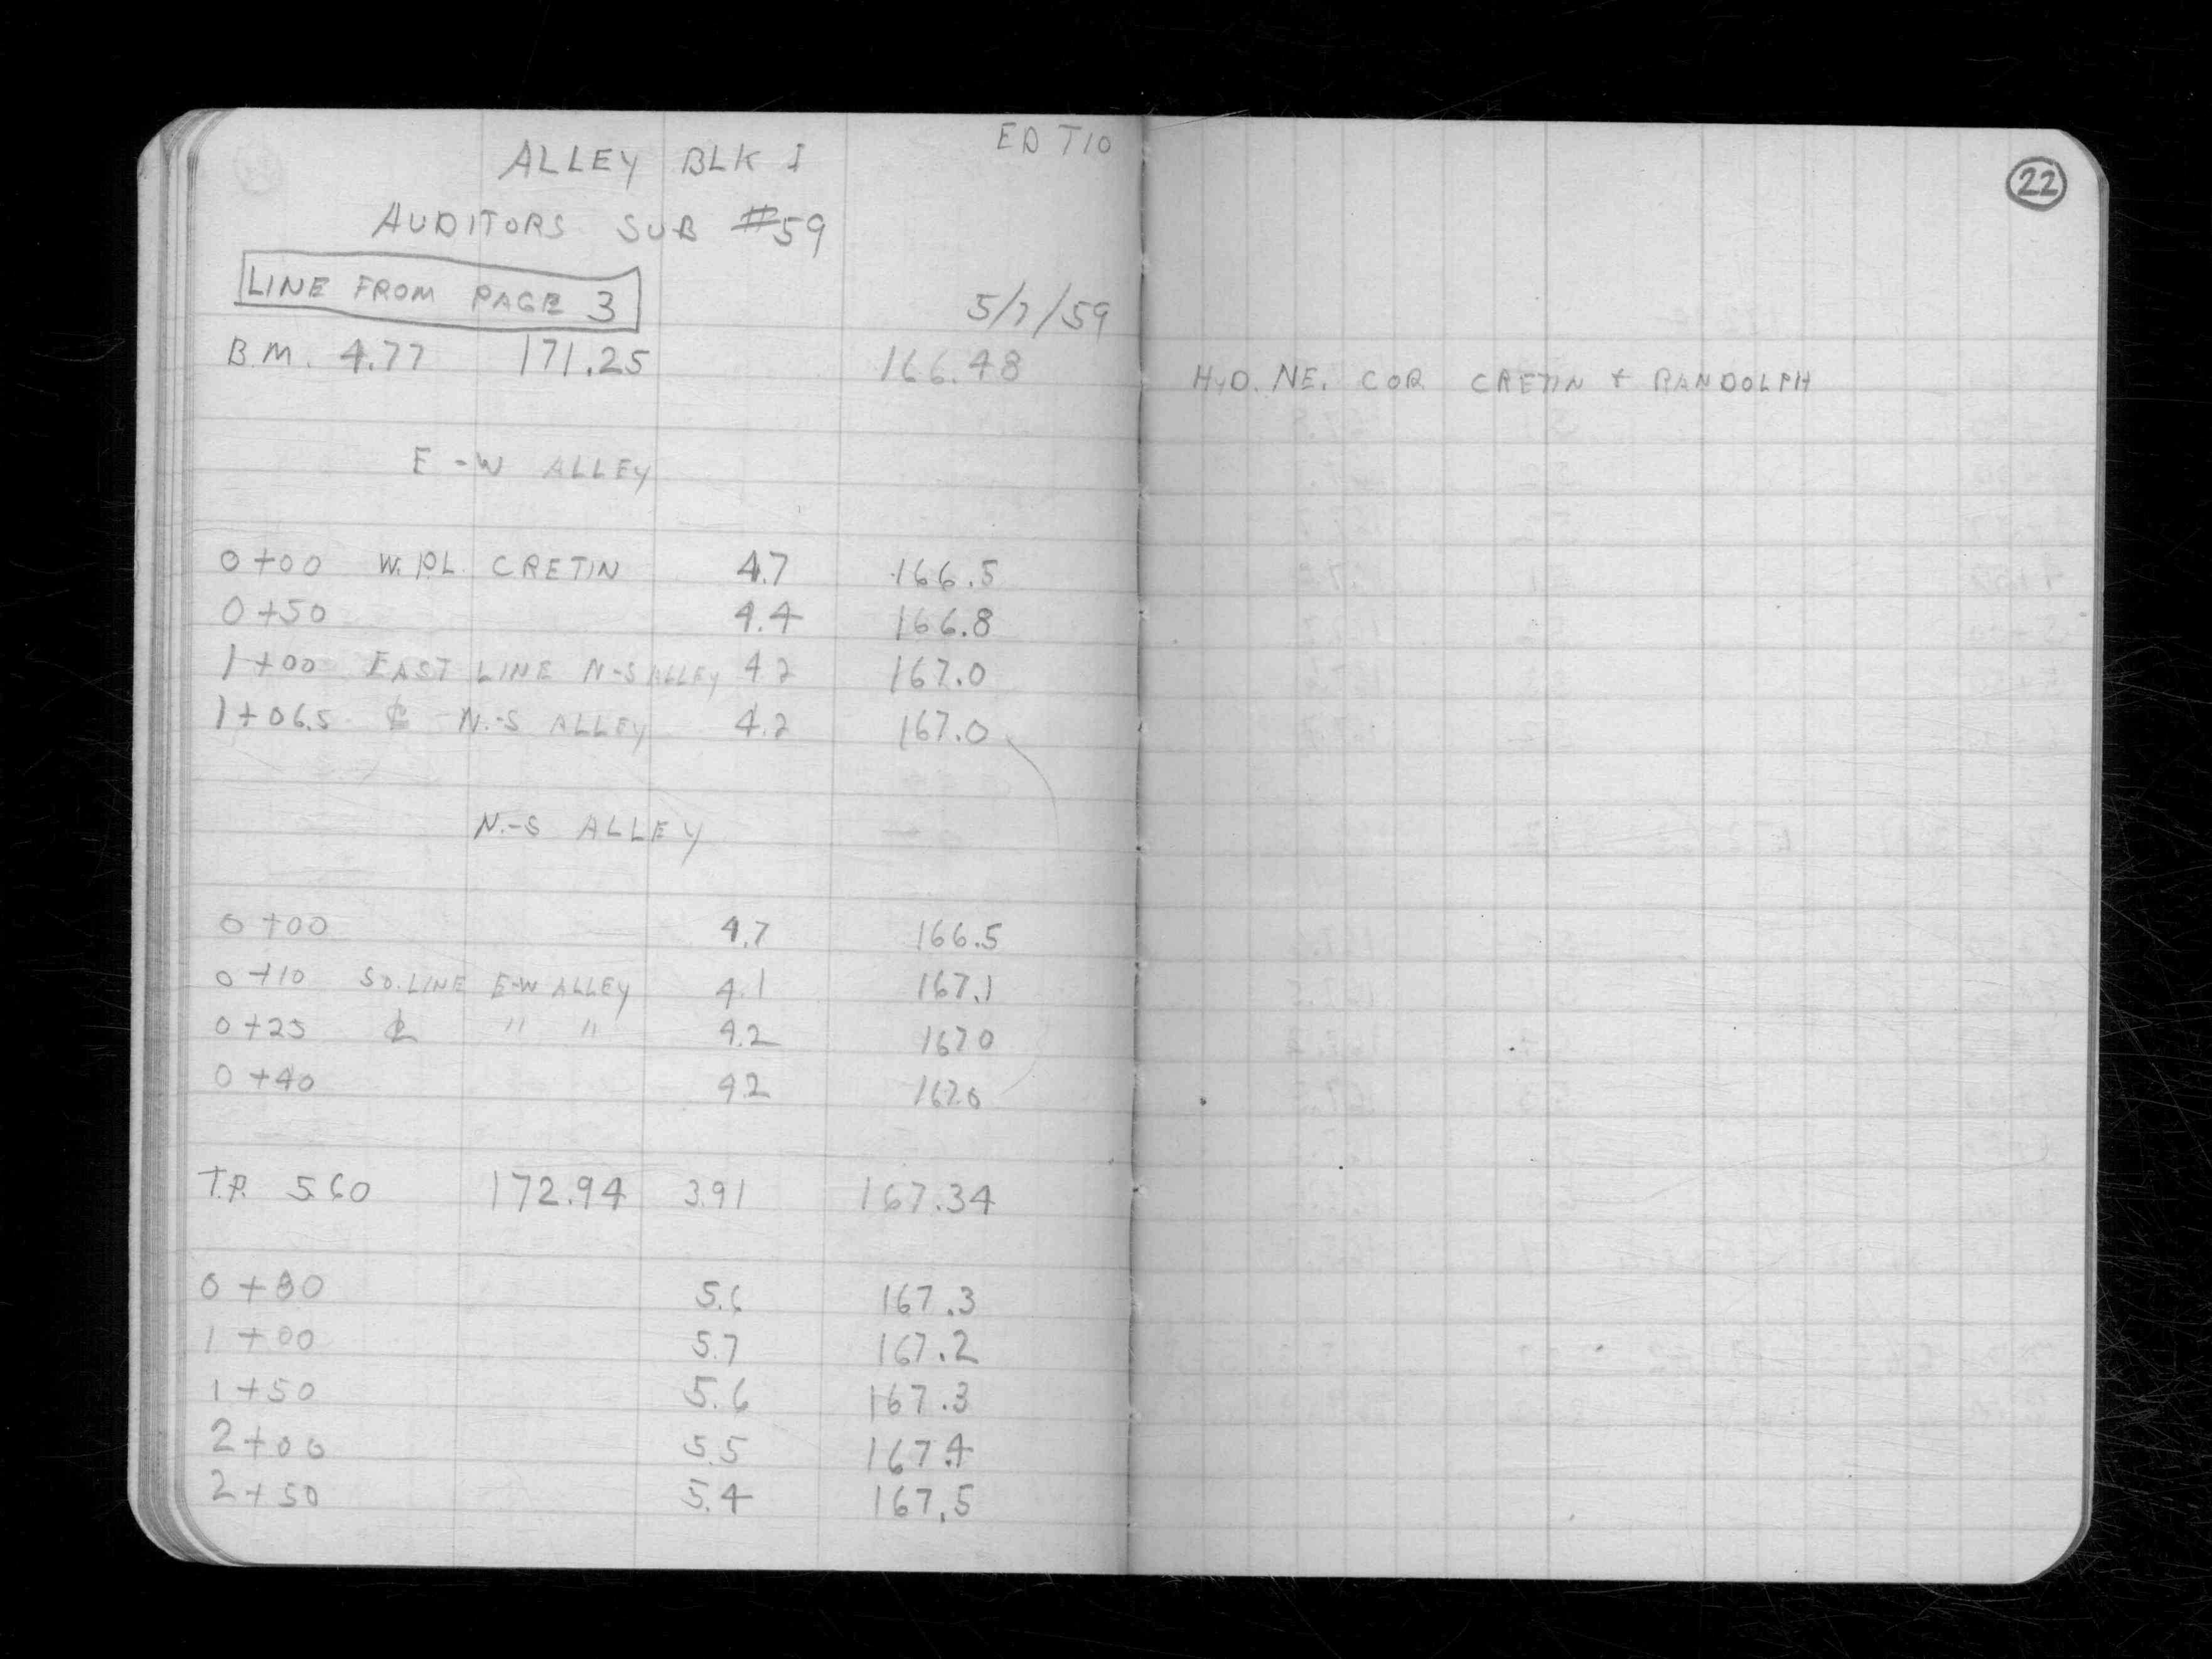 ED T10
ALLEY BLK 1
AUDITORS SUB #59
LINE FROM PAGE 3
5/7/59
B.M. 4.77 171.25 166.48
E-W ALLEY
0+00 W. P.L. CRETIN 4.7 166.5
0+50 4.4 166.8
1+00 EAST LINE N-S ALLEY 4.2 167.0
1+06.5 ℄ N.-S ALLEY 4.2 167.0
N.-S ALLEY
0+00 4.7 166.5
0+10 SO. LINE E-W ALLEY 4.1 167.1
0+25 ℄ " " 4.2 167.0
0+40 4.2 167.0
T.P. 5.60 172.94 3.91 167.34
0+80 5.6 167.3
1+00 5.7 167.2
1+50 5.6 167.3
2+00 5.5 167.4
2+50 5.4 167.5
22
HYD. NE. COR CRETIN + RANDOLPH